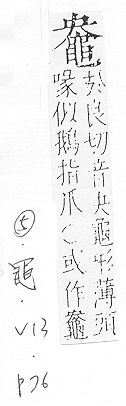 於良切音央龜形薄頭
喙似鵝指爪〻或作
⑤·黽·V13·p76